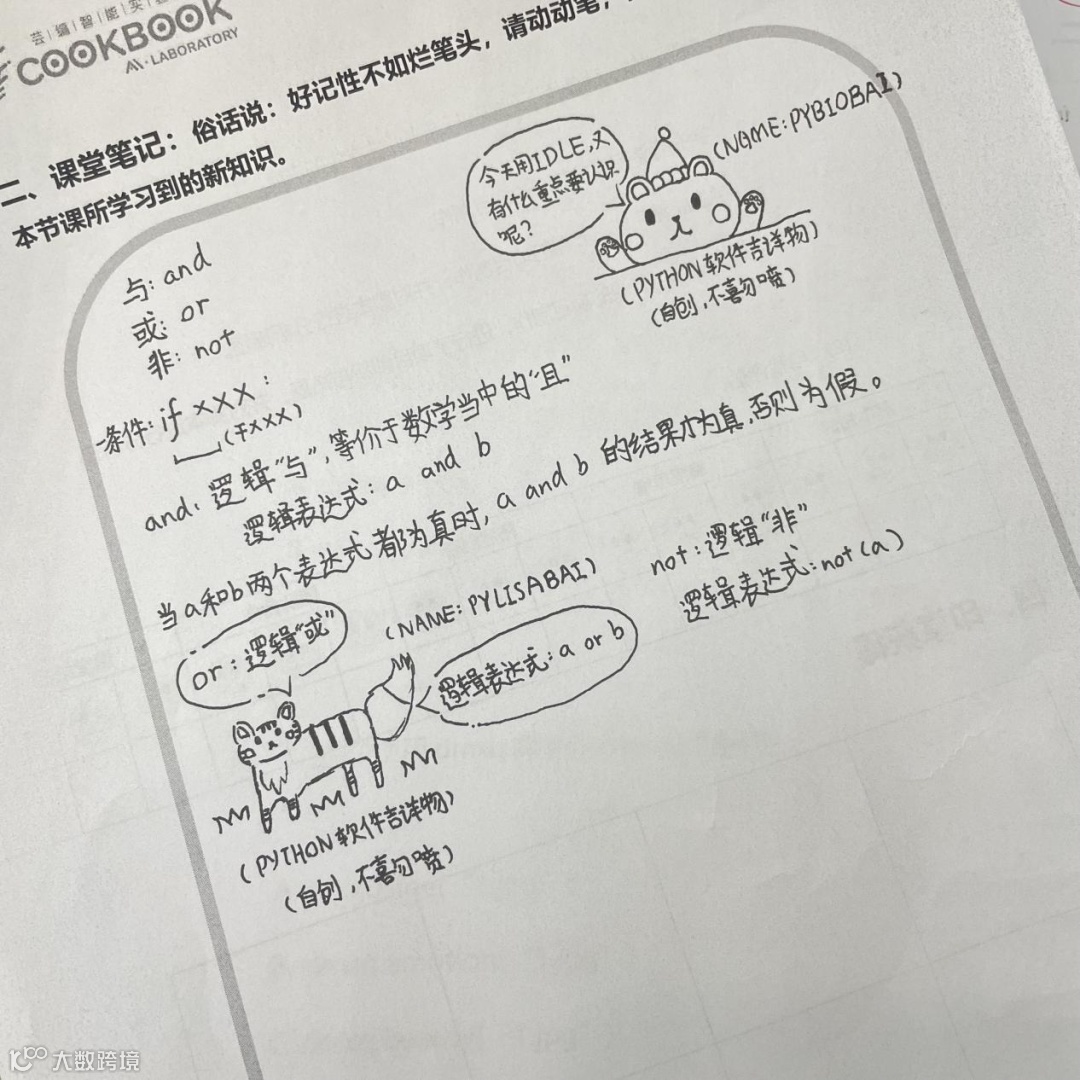 芸|编|智|能|实
COOKBOOK
AI·LABORATORY
二、课堂笔记：俗话说：好记性不如烂笔头，请动动笔，
本节课所学习到的新知识。
今天用IDLE,又
有什么重点要认识
呢？
(NGME:PYBIOBAI)
(PYTHON软件吉详物)
(自创,不喜勿喷)
与: and
或: or
非: not
条件: if xxx:
(干xxx)
and: 逻辑“与”,等价于数学当中的“且”
逻辑表达式: a and b
当a和b两个表达式都为真时, a and b 的结果才为真,否则为假。
or:逻辑“或”
(NAME:PYLISABAI)
逻辑表达式: a or b
not:逻辑“非”
逻辑表达式:not(a)
(PYTHON软件吉详物)
(自创,不喜勿喷)
大数跨境